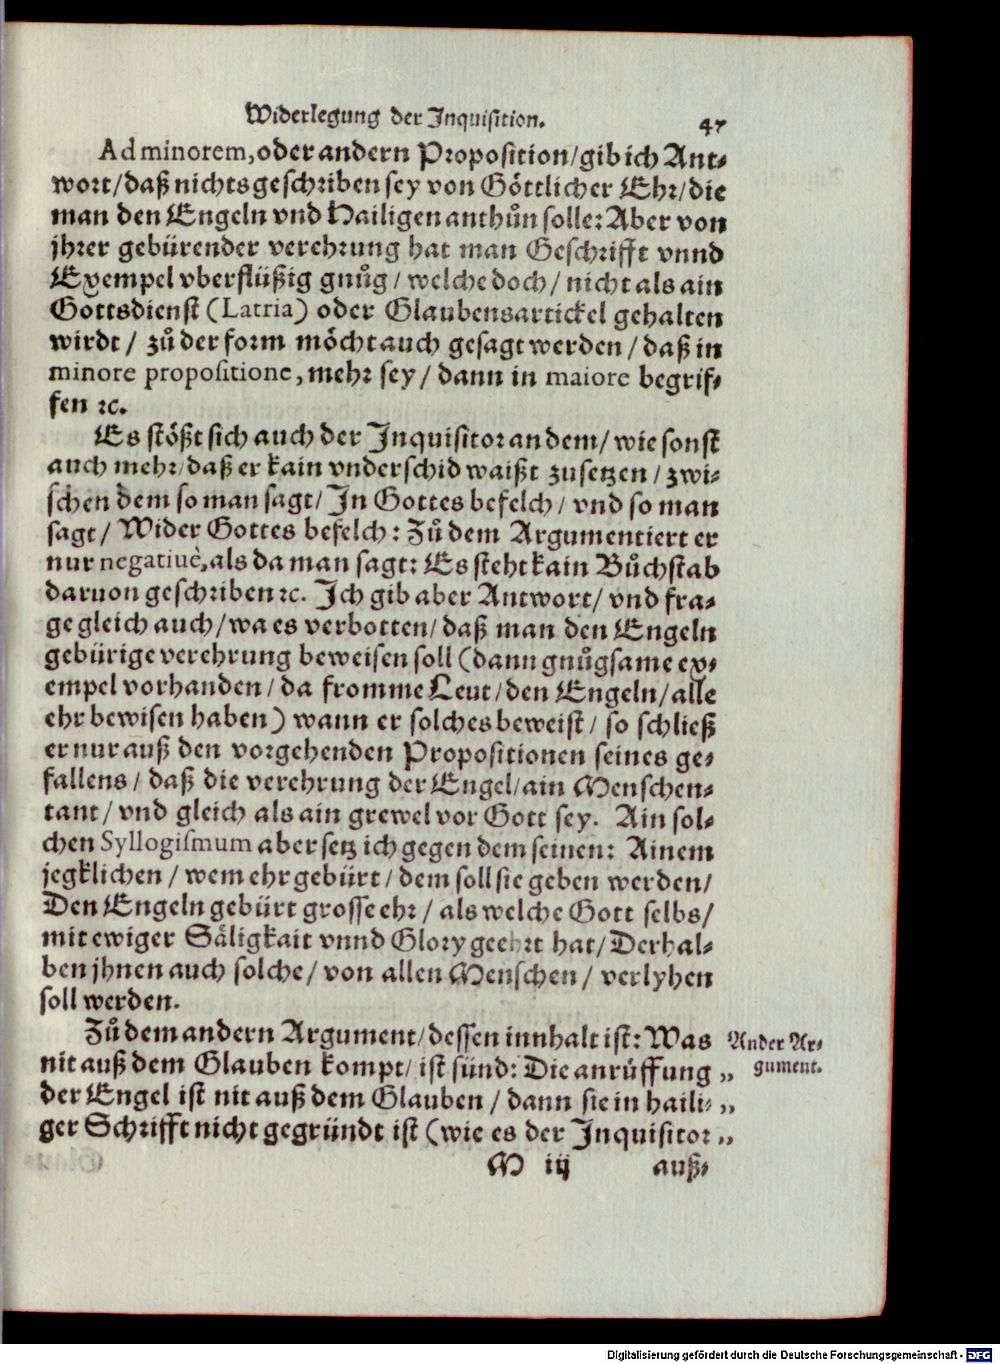 Widerlegung der Inquisition.
47
Ad minorem, oder andern Proposition/ gib ich Ant⸗
wort/ daß nichts geschriben sey von Göttlicher Ehr/ die
man den Engeln vnd Hailigen anthuͦn solle: Aber von
jhrer gebürender verehrung hat man Geschrifft vnnd
Exempel vberflüßig gnuͦg/ welche doch/ nicht als ain
Gottsdienst (Latria) oder Glaubensartickel gehalten
wirdt/ zuͦ der form möcht auch gesagt werden/ daß in
minore propositione, mehr sey/ dann in maiore begrif⸗
fen ꝛc.
Es stößt sich auch der Inquisitor an dem/ wie sonst
auch mehr/ daß er kain vnderschid waißt zusetzen/ zwi⸗
schen dem so man sagt/ In Gottes befelch/ vnd so man
sagt/ Wider Gottes befelch: Zuͦ dem Argumentiert er
nur negatiuè, als da man sagt: Es steht kain Buͦchstab
daruon geschriben ꝛc. Ich gib aber Antwort/ vnd fra⸗
ge gleich auch/ wa es verbotten/ daß man den Engeln
gebürige verehrung beweisen soll (dann gnuͦgsame ex⸗
empel vorhanden/ da fromme Leut/ den Engeln/ alle
ehr bewisen haben) wann er solches beweist/ so schließ
er nur auß den vorgehenden Propositionen seines ge⸗
fallens/ daß die verehrung der Engel/ ain Menschen⸗
tant/ vnd gleich als ain grewel vor Gott sey. Ain sol⸗
chen Syllogismum aber setz ich gegen dem seinen: Ainem
jegklichen/ wem ehr gebürt/ dem soll sie geben werden/
Den Engeln gebürt grosse ehr/ als welche Gott selbs/
mit ewiger Säligkait vnnd Glory geehrt hat/ Derhal⸗
ben jhnen auch solche/ von allen Menschen/ verlyhen
soll werden.
Zuͦ dem andern Argument/ dessen innhalt ist: Was
Ander Ar⸗
gument.
nit auß dem Glauben kompt/ ist sünd: Die anrüffung „
der Engel ist nit auß dem Glauben/ dann sie in haili⸗ „
ger Schrifft nicht gegründt ist (wie es der Inquisitor „
M iij auß⸗
Digitalisierung gefördert durch die Deutsche Forschungsgemeinschaft - DFG